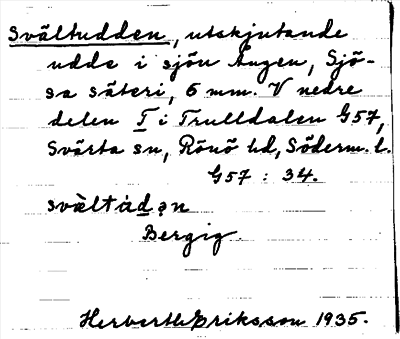 Svältudden, utskjutande
udde i sjön Ången, Sjö-
sa säteri, 6 mm. V nedre
delen T i Trulldalen G57,
Svärta sn, Rönö hd, Söderm. l.
G57 : 34.
Bergig.
Herbert Eriksson 1935.